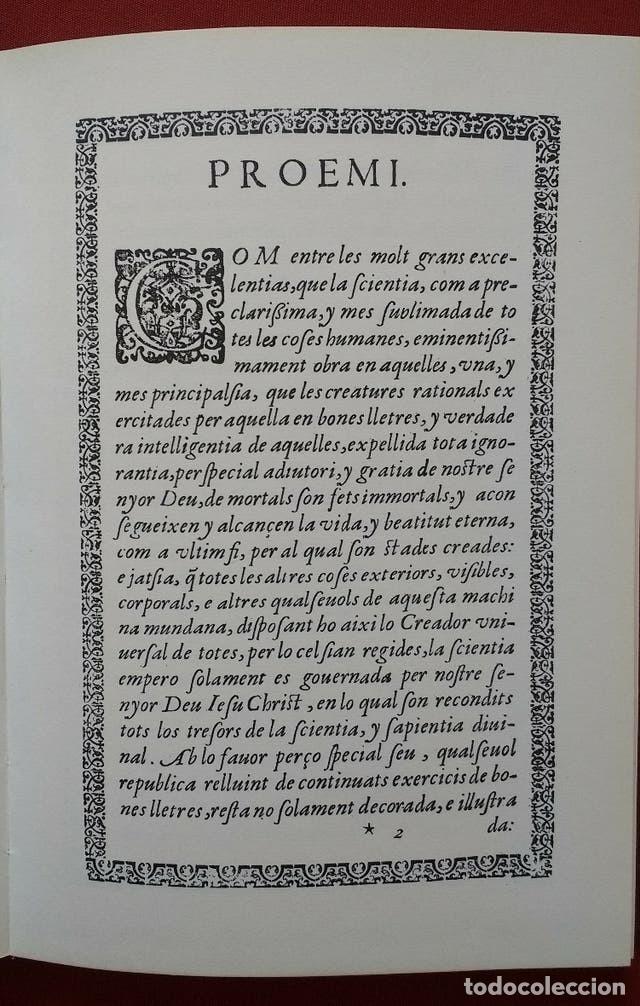 PROEMI.
COM entre les molt grans exce-
lentias, que la ſcientia, com a pre-
clariſſima, y mes ſublimada de to
tes les coſes humanes, eminentiſſi-
mament obra en aquelles, vna, y
mes principalſia, que les creatures rationals ex
ercitades per aquella en bones lletres, y verdade
ra intelligentia de aquelles, expellida tota igno-
rantia, per ſpecial adiutori, y gratia de noſtre ſe
nyor Deu, de mortals ſon fets immortals, y acon
ſegueixen y alcançen la vida, y beatitut eterna,
com a vltim fi, per al qual ſon ſtades creades:
e jatſia, q̃ totes les altres coſes exteriors, viſibles,
corporals, e altres qualſeuols de aqueſta machi
na mundana, diſpoſant ho aixi lo Creador vni-
uerſal de totes, per lo cel ſian regides, la ſcientia
empero ſolament es gouernada per noſtre ſe-
nyor Deu Ieſu Chriſt, en lo qual ſon recondits
tots los treſors de la ſcientia, y ſapientia diui-
nal. Ab lo fauor perço ſpecial ſeu, qualſeuol
republica relluint de continuats exercicis de bo-
nes lletres, reſta no ſolament decorada, e illuſtra
★ 2 da:
todocoleccion